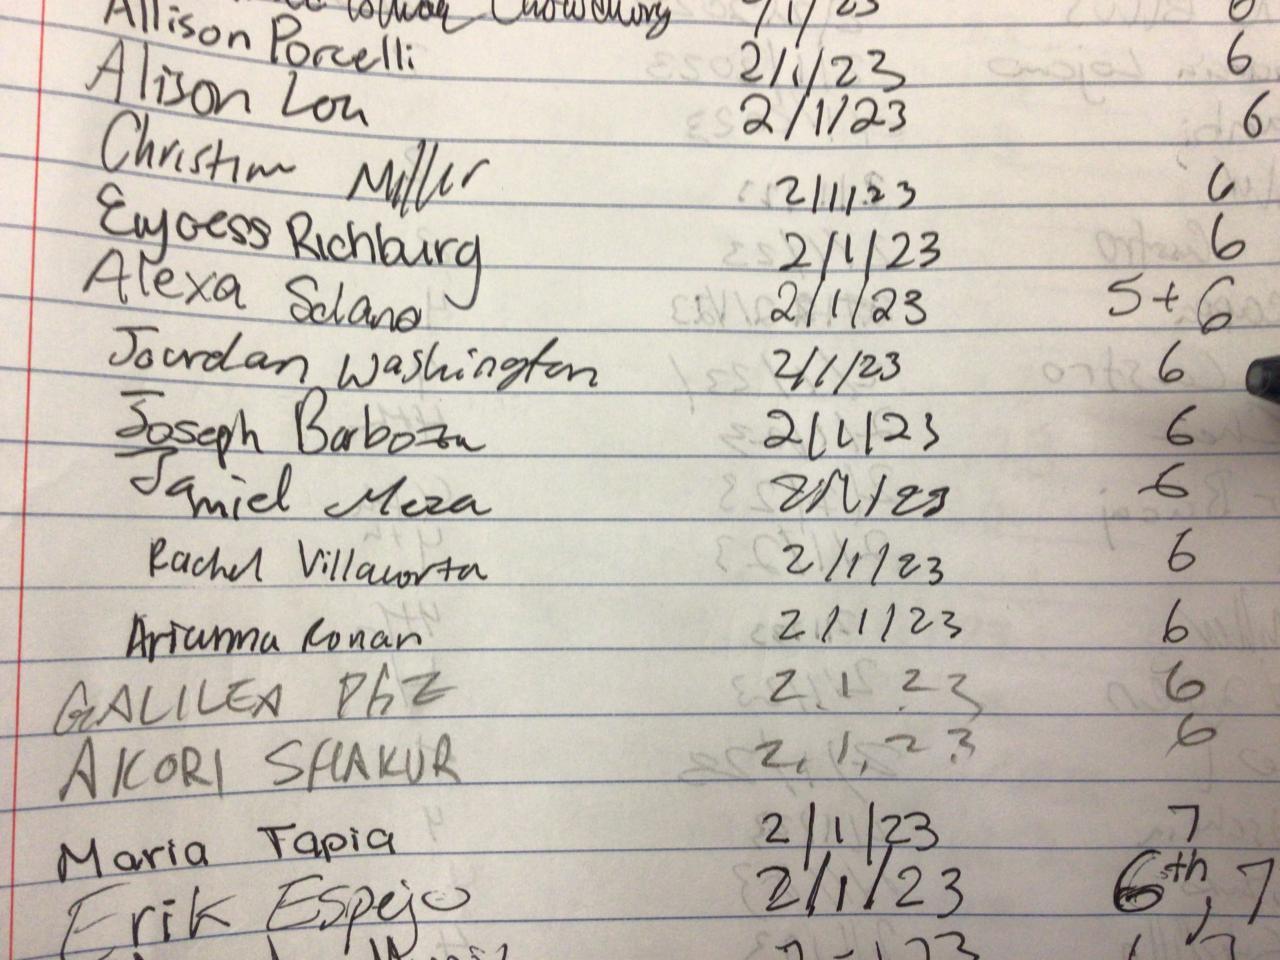 Chowdhury 2/1/23 6
Allison Porcelli 2/1/23 6
Alison Lou 2/1/23 6
Christina Miller 2/1/23 6
Richburg 2/1/23 6
Alexa Solano 2/1/23 5+6
Jourdan Washington 2/1/23 6
Joseph Barboza 2/1/23 6
Jamiel Meza 2/1/23 6
Rachel Villacorta 2/1/23 6
Arianna Ronan 2/1/23 6
GALILEA 2.1.23 6
AKORI SHAKUR 2.1.23 6
Maria Tapia 2/1/23 7
Erik Espejo 2/1/23 6th, 7